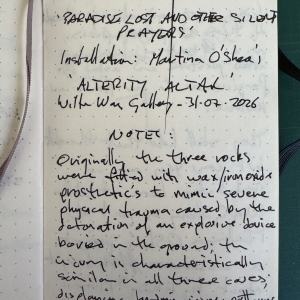 'PARADISE LOST AND OTHER SILENT
PRAYERS'
Installation: Martina O'Shea's
'ALTERITY ALTAR'
Gallery - 31-07-2026
NOTES:
Originally the three rocks
were fitted with wax/iron oxide
prosthetic's to mimic severe
physical trauma caused by the
detonation of an explosive device
buried in the ground; the
is characteristically
similar in all three cases: